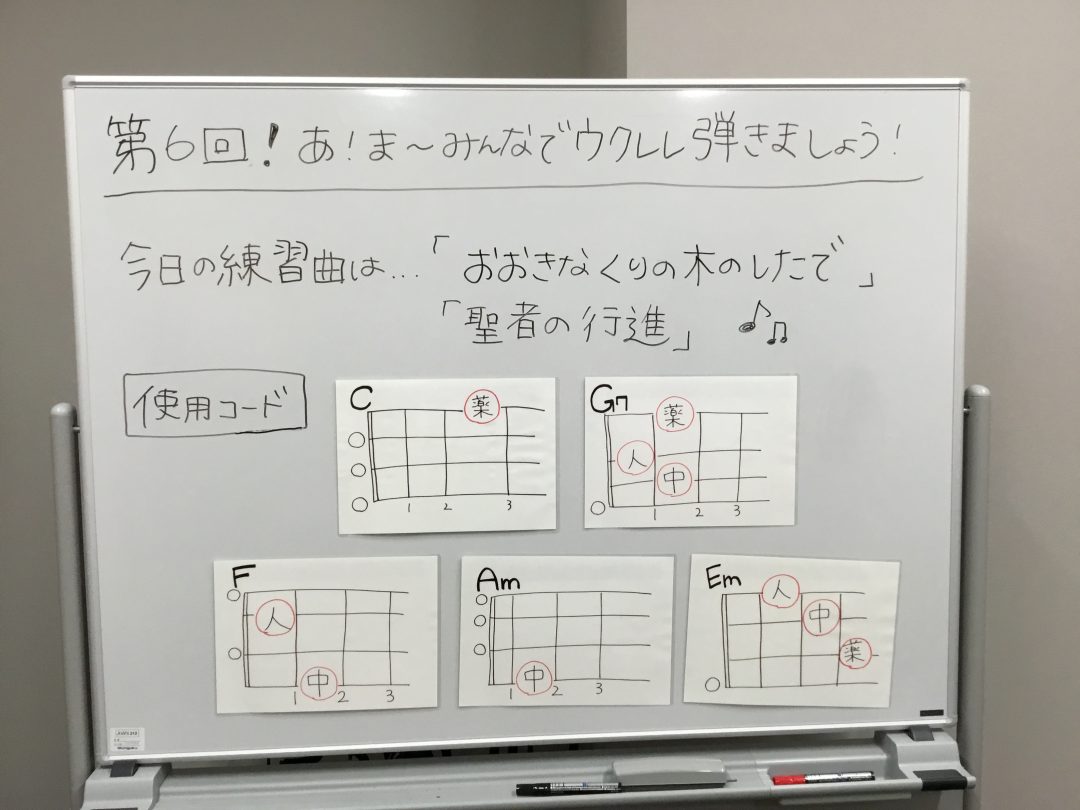 第6回!あ!ま〜みんなでウクレレ弾きましょう!
今日の練習曲は...「おおきなくりの木のしたで」
「聖者の行進」
使用コード
C
薬
1 2 3
G7
薬
人
中
1 2 3
F
人
中
1 2 3
Am
中
1 2 3
Em
人
中
薬